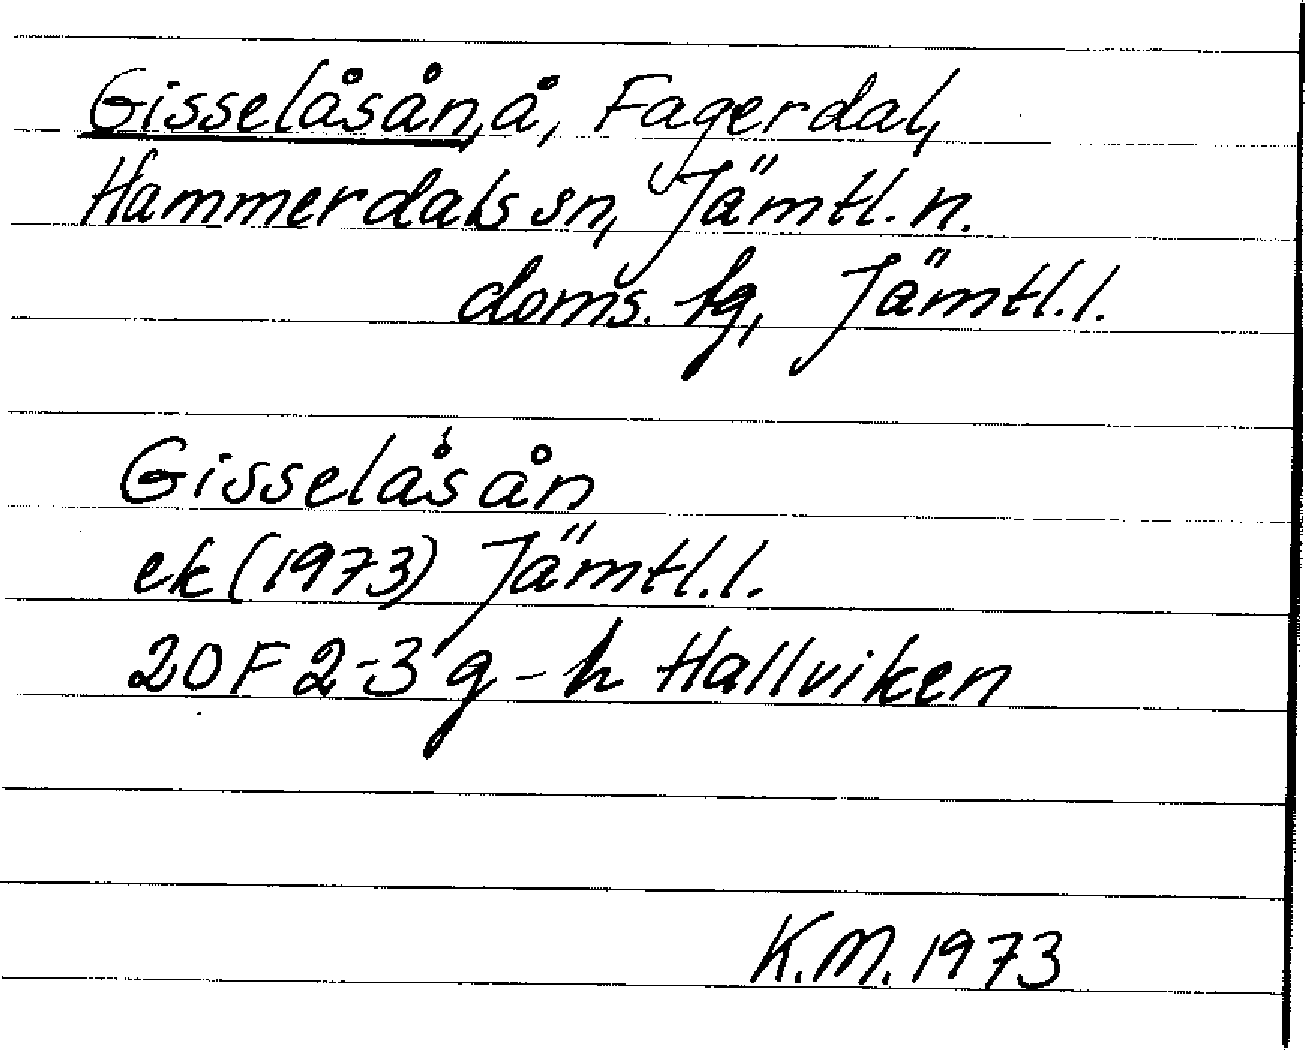 Gisselåsån, å, Fagerdal,
Hammerdals sn, Jämtl. n.
doms. tg, Jämtl. l.
Gisselåsån
ek (1973) Jämtl. l.
20 F 2-3 g-h Hallviken
K.M. 1973